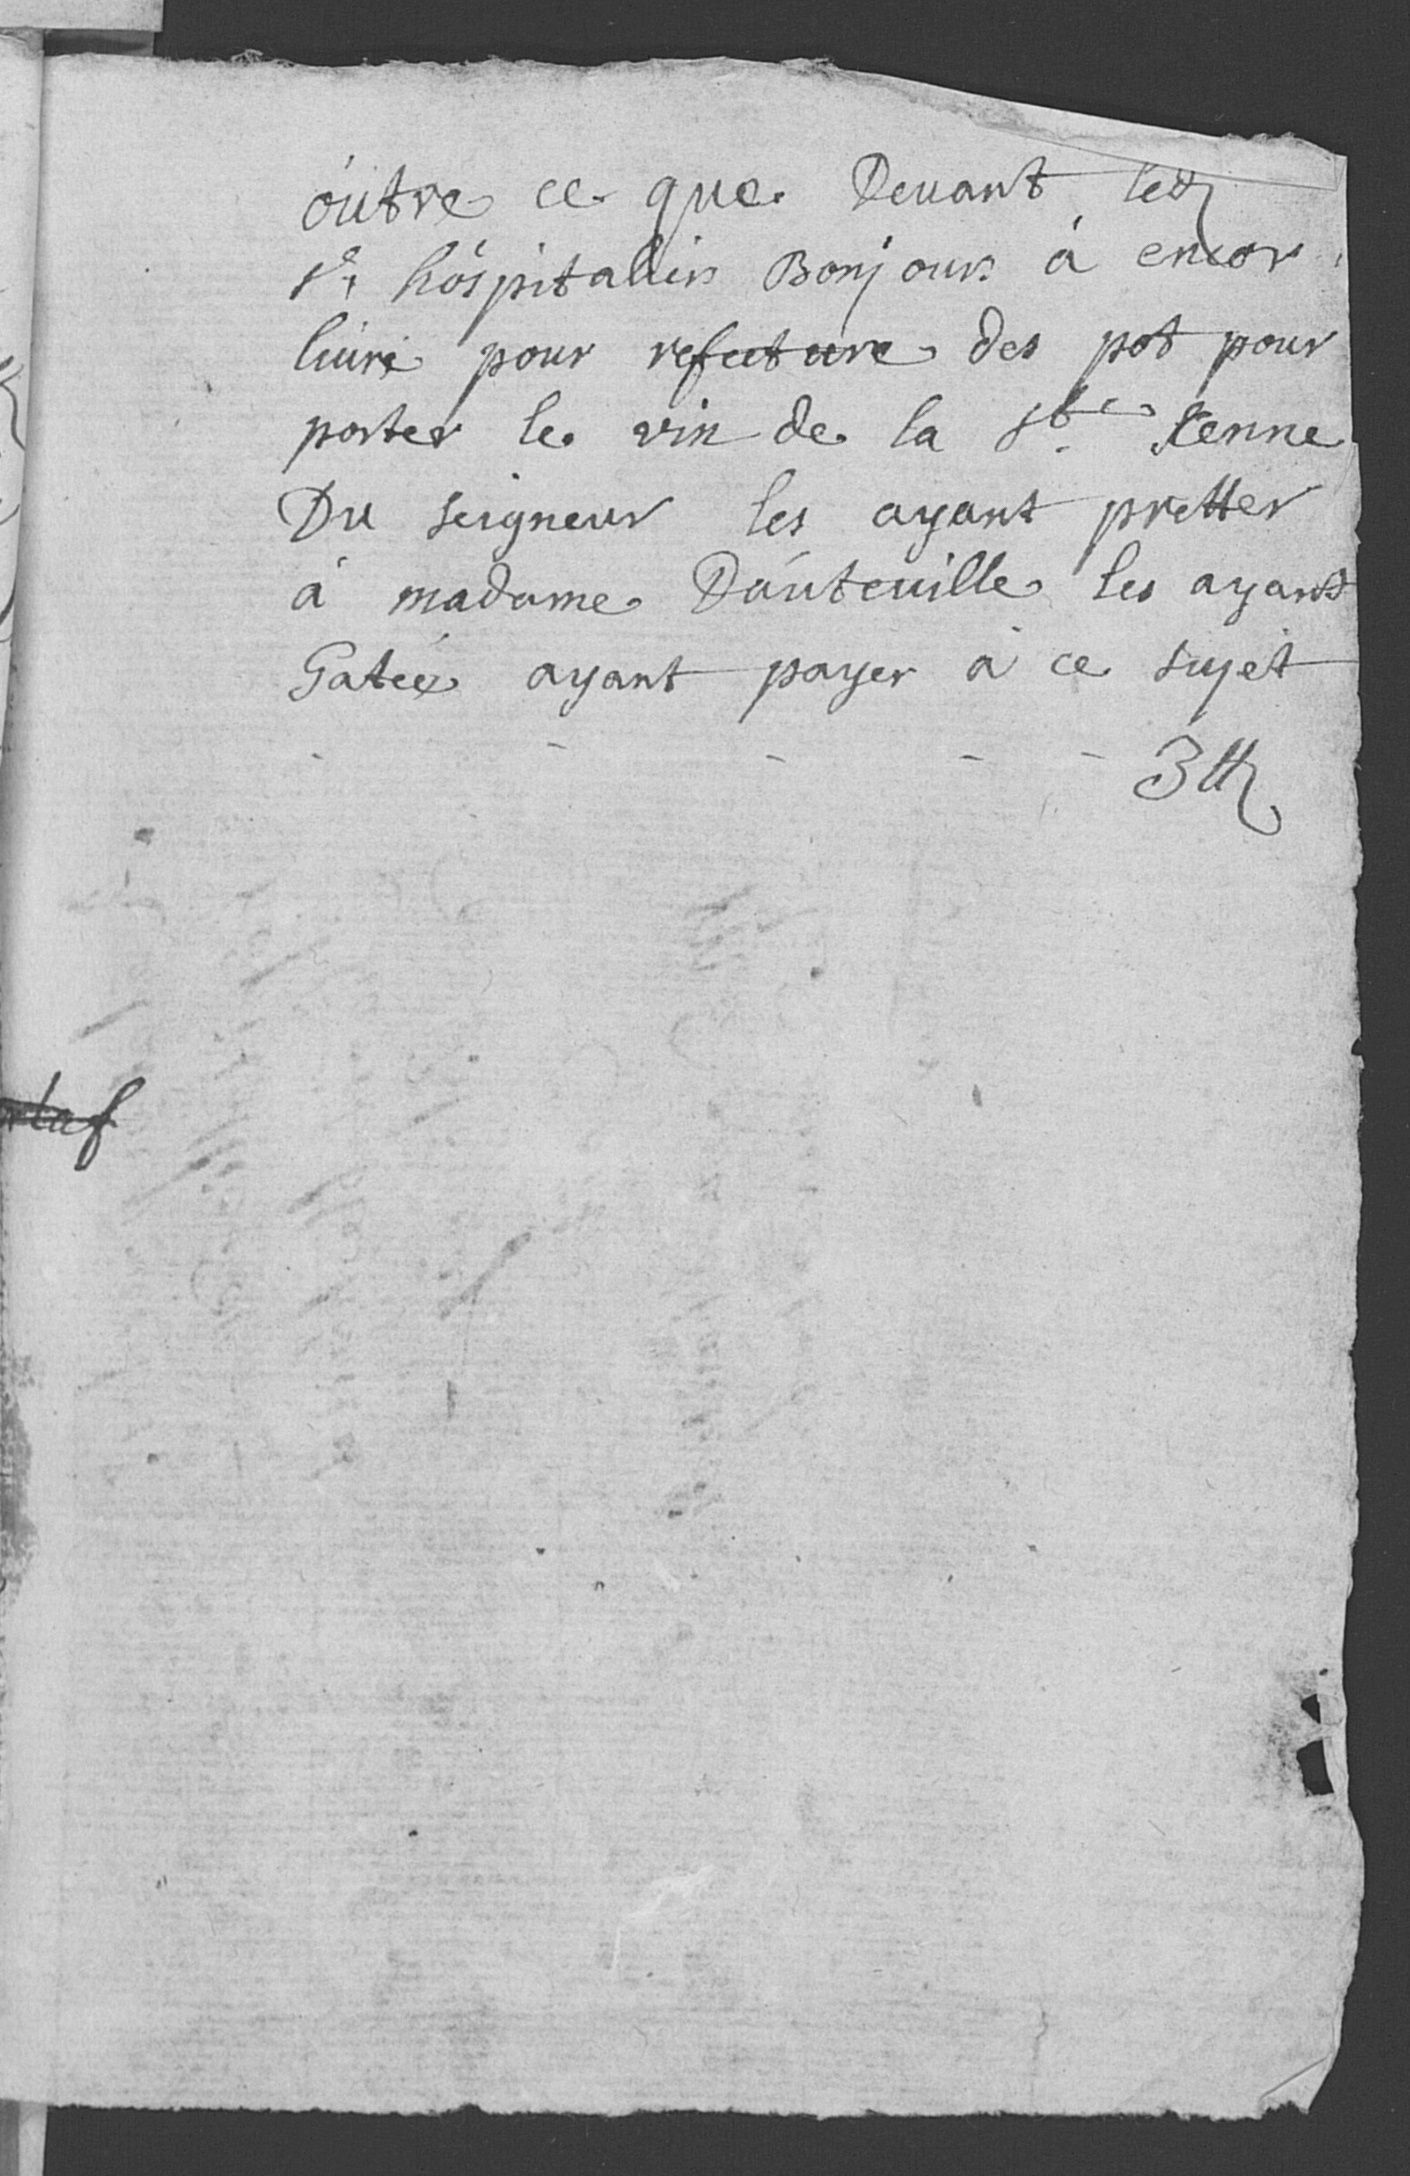 outre ce que Devant led
sr hospitalier Bonjour à encor
livré pour refecture des pot pour
porter le vin de la ste Cenne
Du seigneur les ayant pretter
à madame Dauteuille les ayant
Gatéez ayant payer à ce sujet
- - - - - 3 ₶